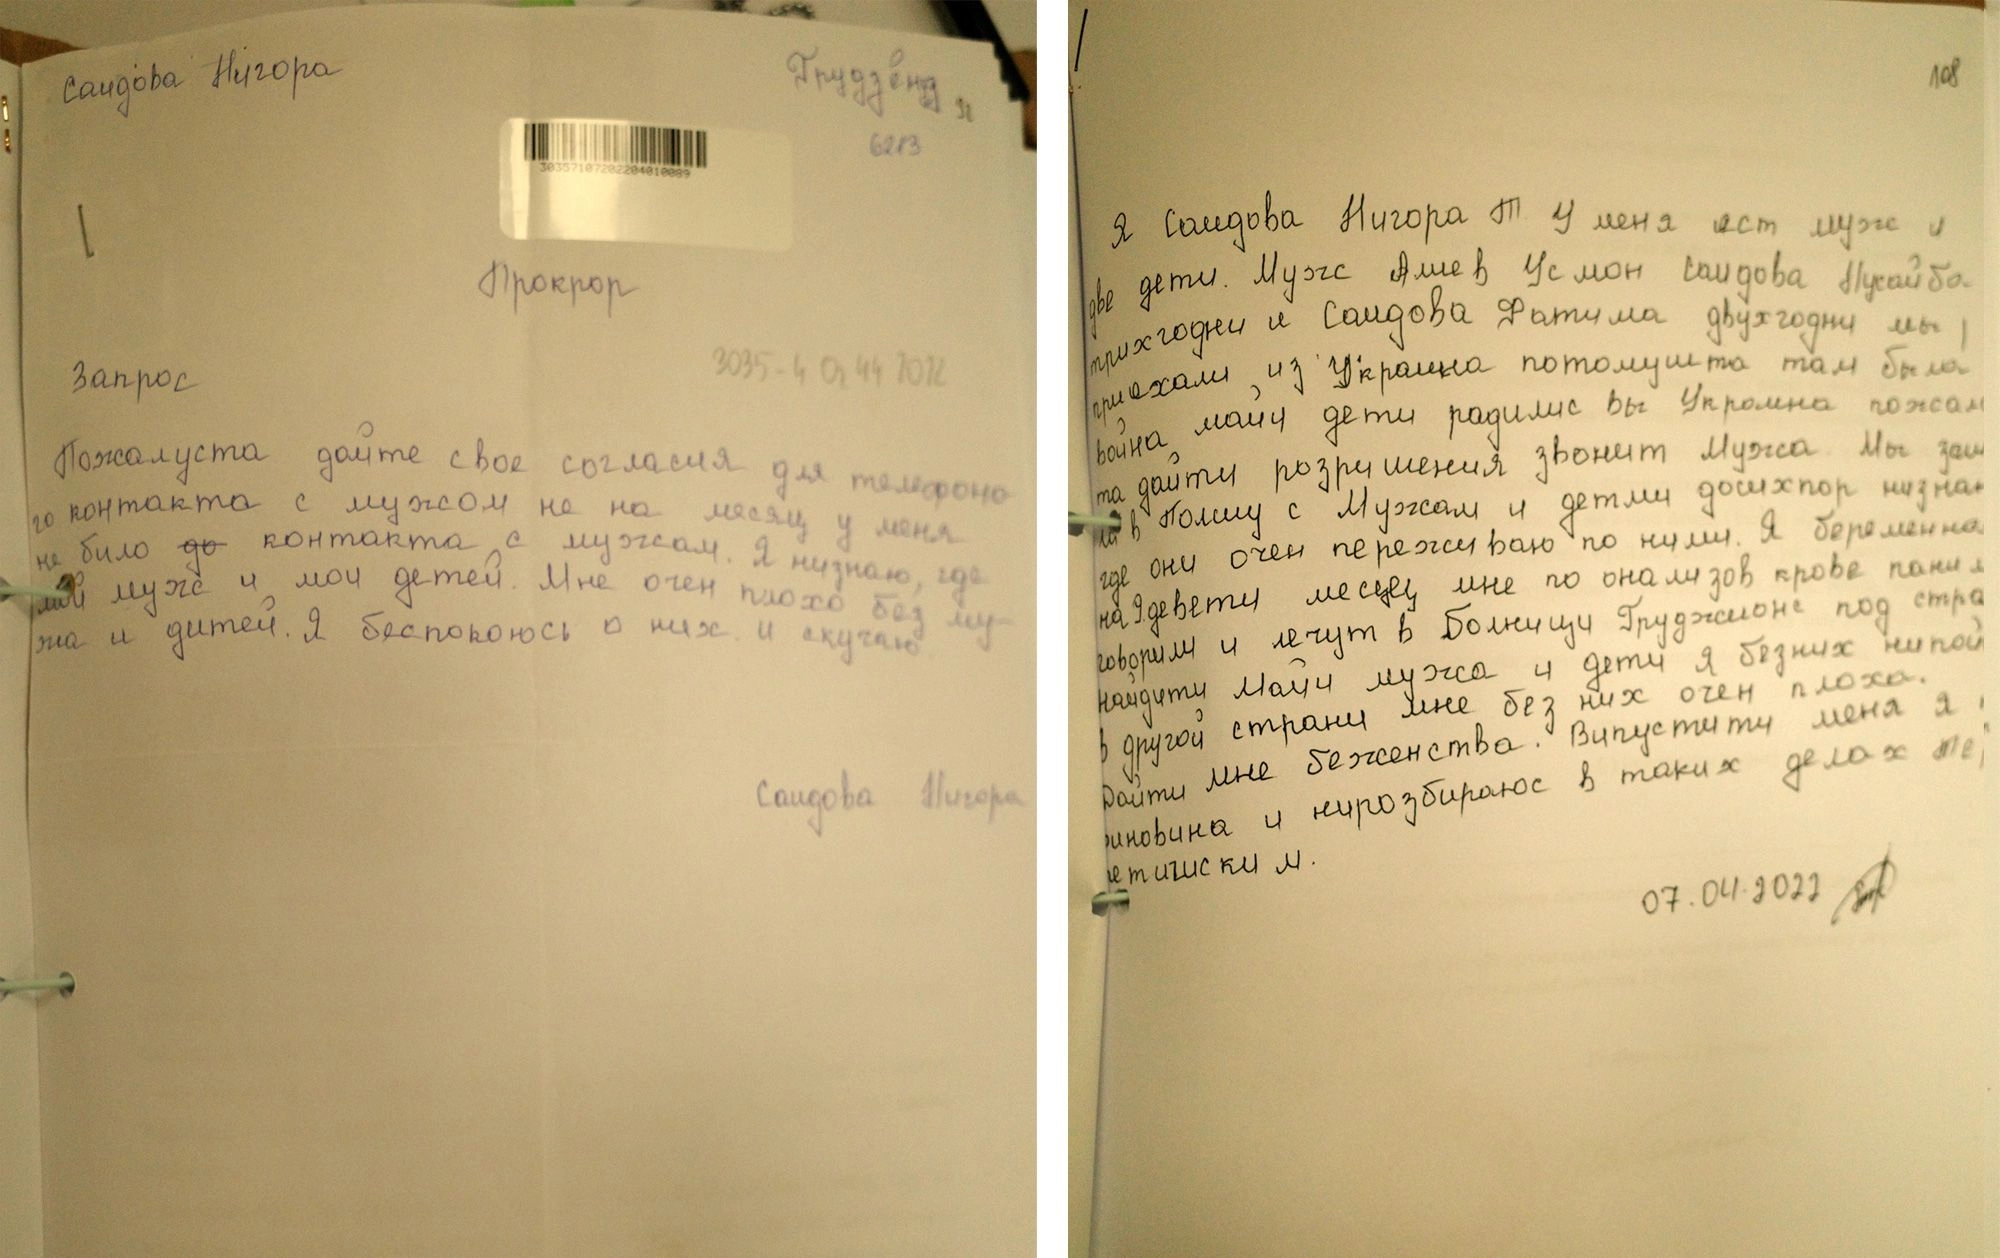 Саидова Нигора
Грудзёндз
92
6213
30357107202204010089
Прокрор
3035-4 Oz 44 2022
Запрос
Пожалуста дайте свое согласия для телефоно
го контакта с мужсом не на месяц у меня
не било до контакта с мужсам. Я низнаю, где
мой мужс и мои детей. Мне очен плохо без му-
жа и дитей. Я беспокоюсь о них и скучаю
Саидова Нигора
108
Я Саидова Нигора Т. У меня ест мужс и
две дети. Мужс Алиев Усмон Саидова Мухайба
трихгодни и Саидова Фатима двухгодни мы
приехали из Украина потомушта там была
война майи дети радилис вы Украина пожал
та дайти розришения звонит Мужса. Мы заш
ли в Полшу с Мужсам и детми досихпор низна
где они очен переживаю по ними. Я беременна
на 9девети месяц мне по онализов крове
говорили и лечут в Болници Груджионс под стра
найдити майи мужса и дети я безних
в другой страни мне без них очен плоха.
Дайти мне беженства. Випустити меня я
виновина и нирозбираюс в таких делах
етичиски м.
07.04.2022